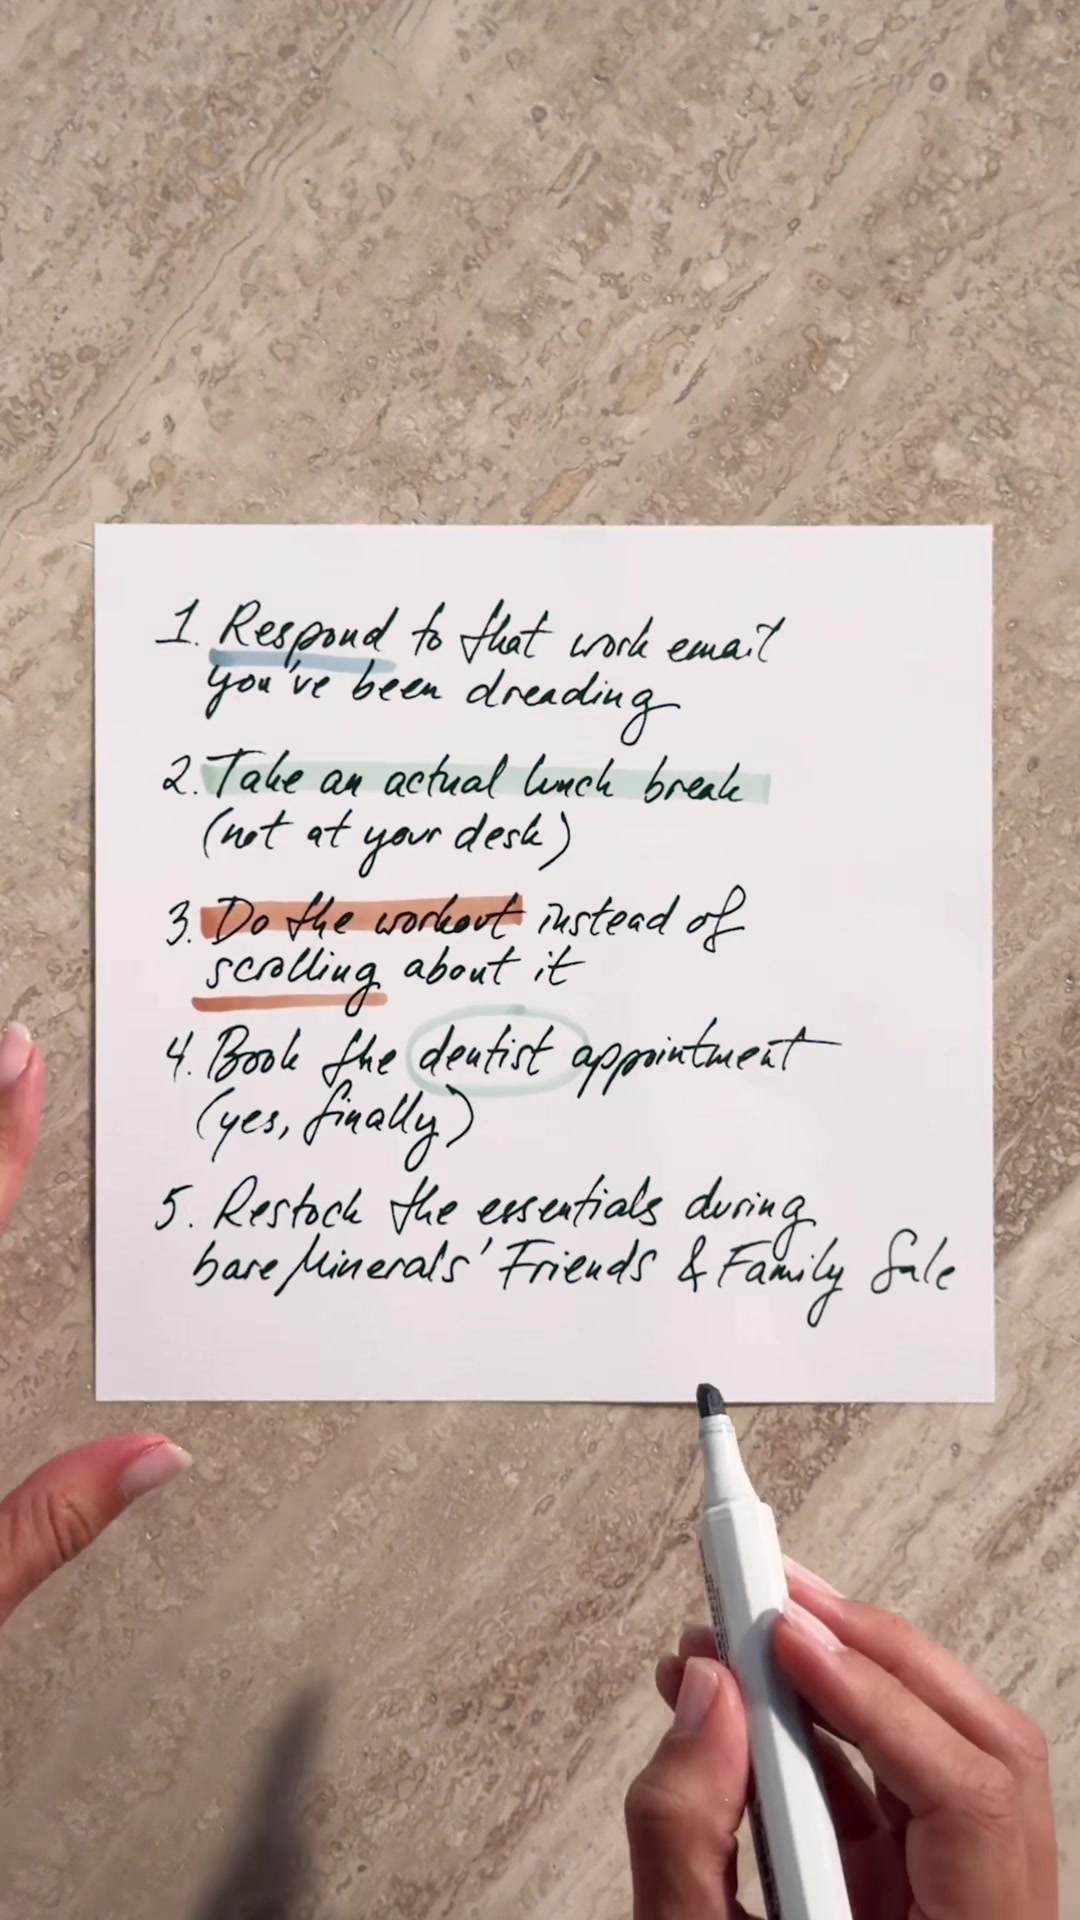 1. Respond to that work email
you've been dreading
2. Take an actual lunch break
(not at your desk)
3. Do the workout instead of
scrolling about it
4. Book the dentist appointment
(yes, finally)
5. Restock the essentials during
bareMinerals' Friends & Family Sale